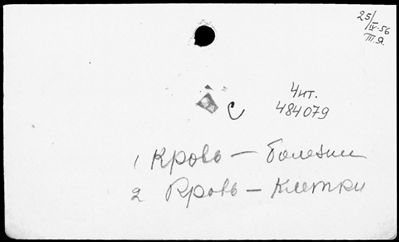 25/
IV-56
Т.Я.
с
Чит.
484079
1 Кровь — болезни
2 Кровь — Клетки